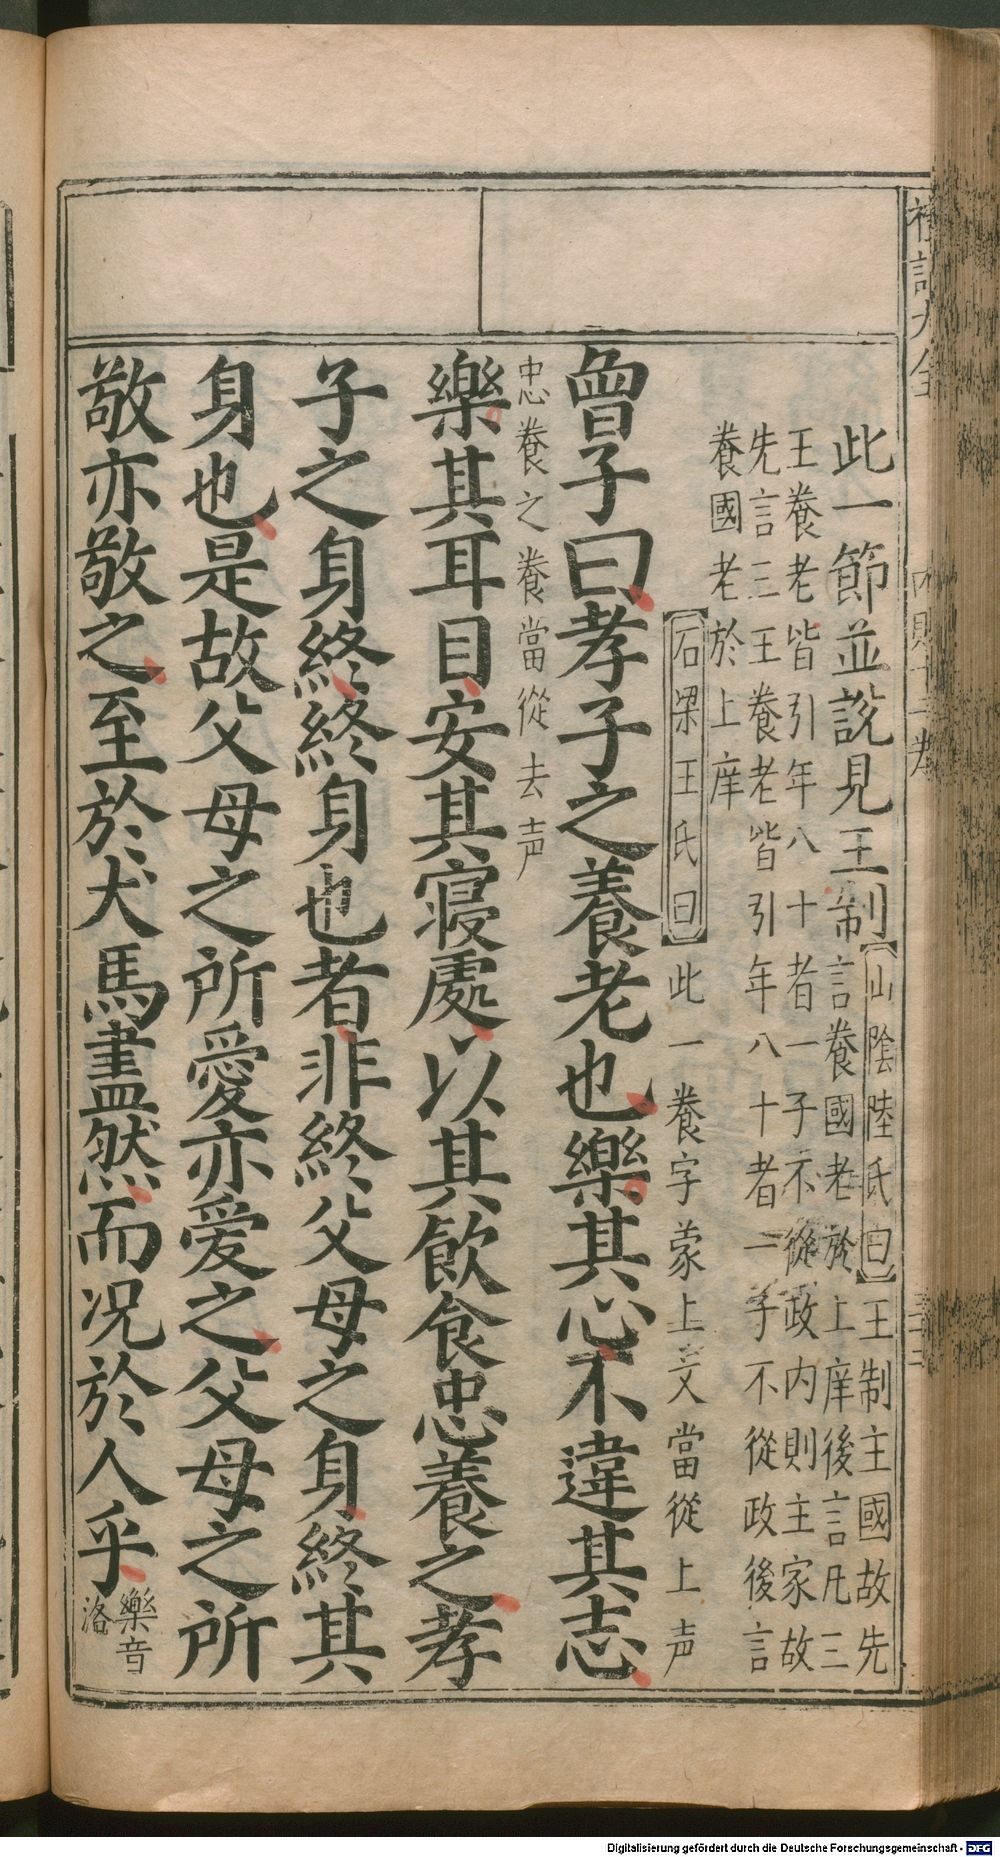 記大全
內則十二卷
此一節並說見王制【山陰陸氏曰】王制主國故先
言養國老於上庠後言凡三
王養老皆引年八十者一子不從政内則主家故
先言三王養老皆引年八十者一子不從政後言
養國老於上庠
【石梁王氏曰】此一養字蒙上文當從上声
曾子曰孝子之養老也樂其心不違其志
忠養之養當從去声
樂其耳目安其寢處以其飲食忠養之孝
子之身終終身也者非終父母之身終其
身也是故父母之所愛亦愛之父母之所
敬亦敬之至於犬馬盡然而况於人乎樂音
洛
Digitalisierung gefördert durch die Deutsche Forschungsgemeinschaft - DFG